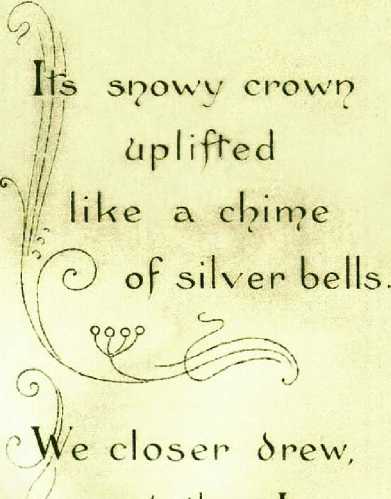 Its snowy crown
uplifted
like a chime
of silver bells.
We closer drew,